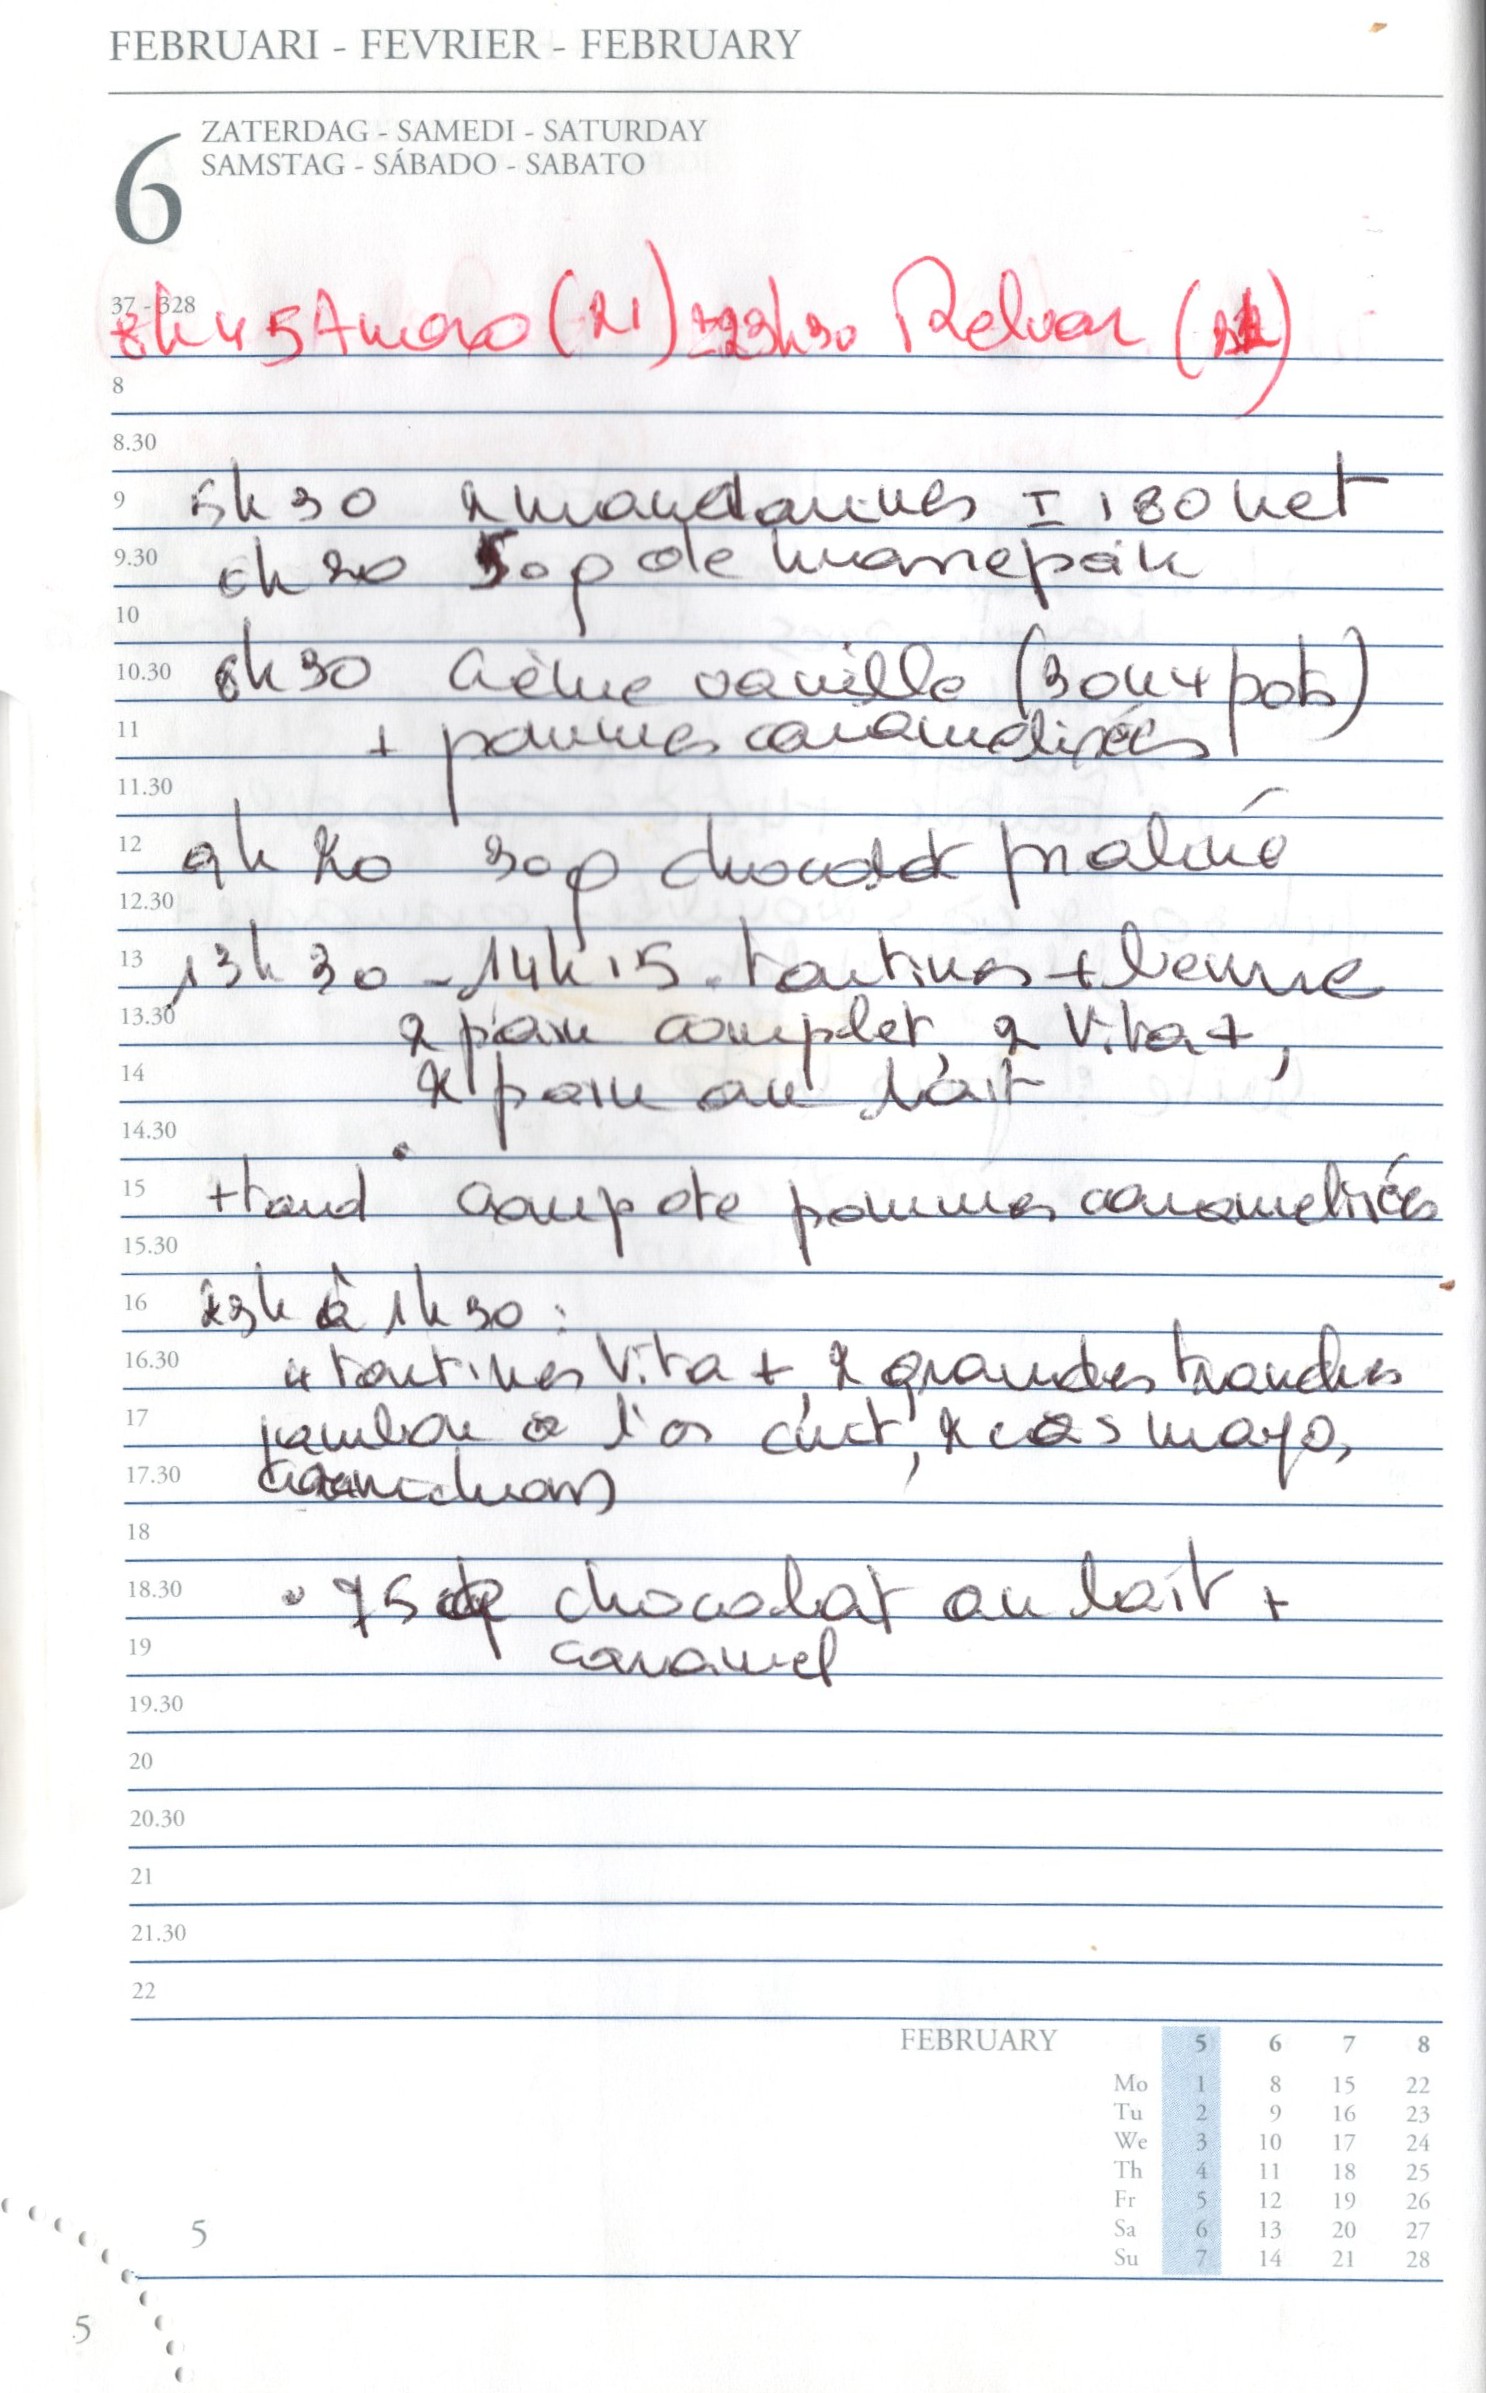 FEBRUARI - FEVRIER - FEBRUARY
6
ZATERDAG - SAMEDI - SATURDAY
SAMSTAG - SÁBADO - SABATO
37 - 328
8h45 Amoxo (21) ±23h30 Relvar
8
8.30
9 5h30 2 mandarines ± 180 net
9.30 6h20 50g de
10
10.30 8h30 crème vanille (30h 4 pots)
11 + pommes caramelisées
11.30
12 9h20 30g chocolat praliné
12.30
13 13h30 - 14h15. tartines + beurre
13.30 2 pain complet, 2 Vita+,
14 2 pain au lait
14.30
15 + tard compote pommes caramelisées
15.30
16 23h à 1h30 :
16.30 4 tartines Vita+, 2 grandes tranches
17 jambon à l'os cuit, 2 càs mayo,
17.30 cornichons
18
18.30 75g chocolat au lait +
19 caramel
19.30
20
20.30
21
21.30
22
FEBRUARY 5 6 7 8
Mo 1 8 15 22
Tu 2 9 16 23
We 3 10 17 24
Th 4 11 18 25
Fr 5 12 19 26
Sa 6 13 20 27
Su 7 14 21 28
5
5